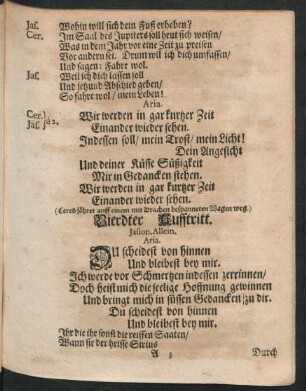 Jas. Wohin will sich dein Fuß erheben?
Cer. Im Saal des Jupiters soll heut sich weisen/
Was in dem Jahr vor eine Zeit zu preisen
Vor andern sei. Drum wil ich dich umfassen/
Und sagen: Fahre wol.
Jas. Weil ich dich lassen soll
Und jetzund Abschied geben/
So fahre wol/ mein Leben!
Aria.
Cer.
Jas. Wir werden in gar kurtzer Zeit
Einander wieder sehen.
Indessen soll/ mein Trost/ mein Licht!
Dein Angesicht
Und deiner Küsse Süßigkeit
Mir in Gedancken stehen.
Wir werden in gar kurtzer Zeit
Einander wieder sehen.
(Ceres fähret auff einem mit Drachen bespanneten Wagen weg.)
Vierdter Aufftritt.
Jasion. Allein.
Aria.
DU scheidest von hinnen
Und bleibest bey mir.
Ich werde vor Schmertzen indessen zerrinnen/
Doch heist mich die seelige Hoffnung gewinnen
Und bringt mich in süssen Gedancken zu dir.
Du scheidest von hinnen
Und bleibest bey mir.
Ihr die ihr sonst die reiffen Saaten/
Wann sie der heisse Sirius
A 3 Durch